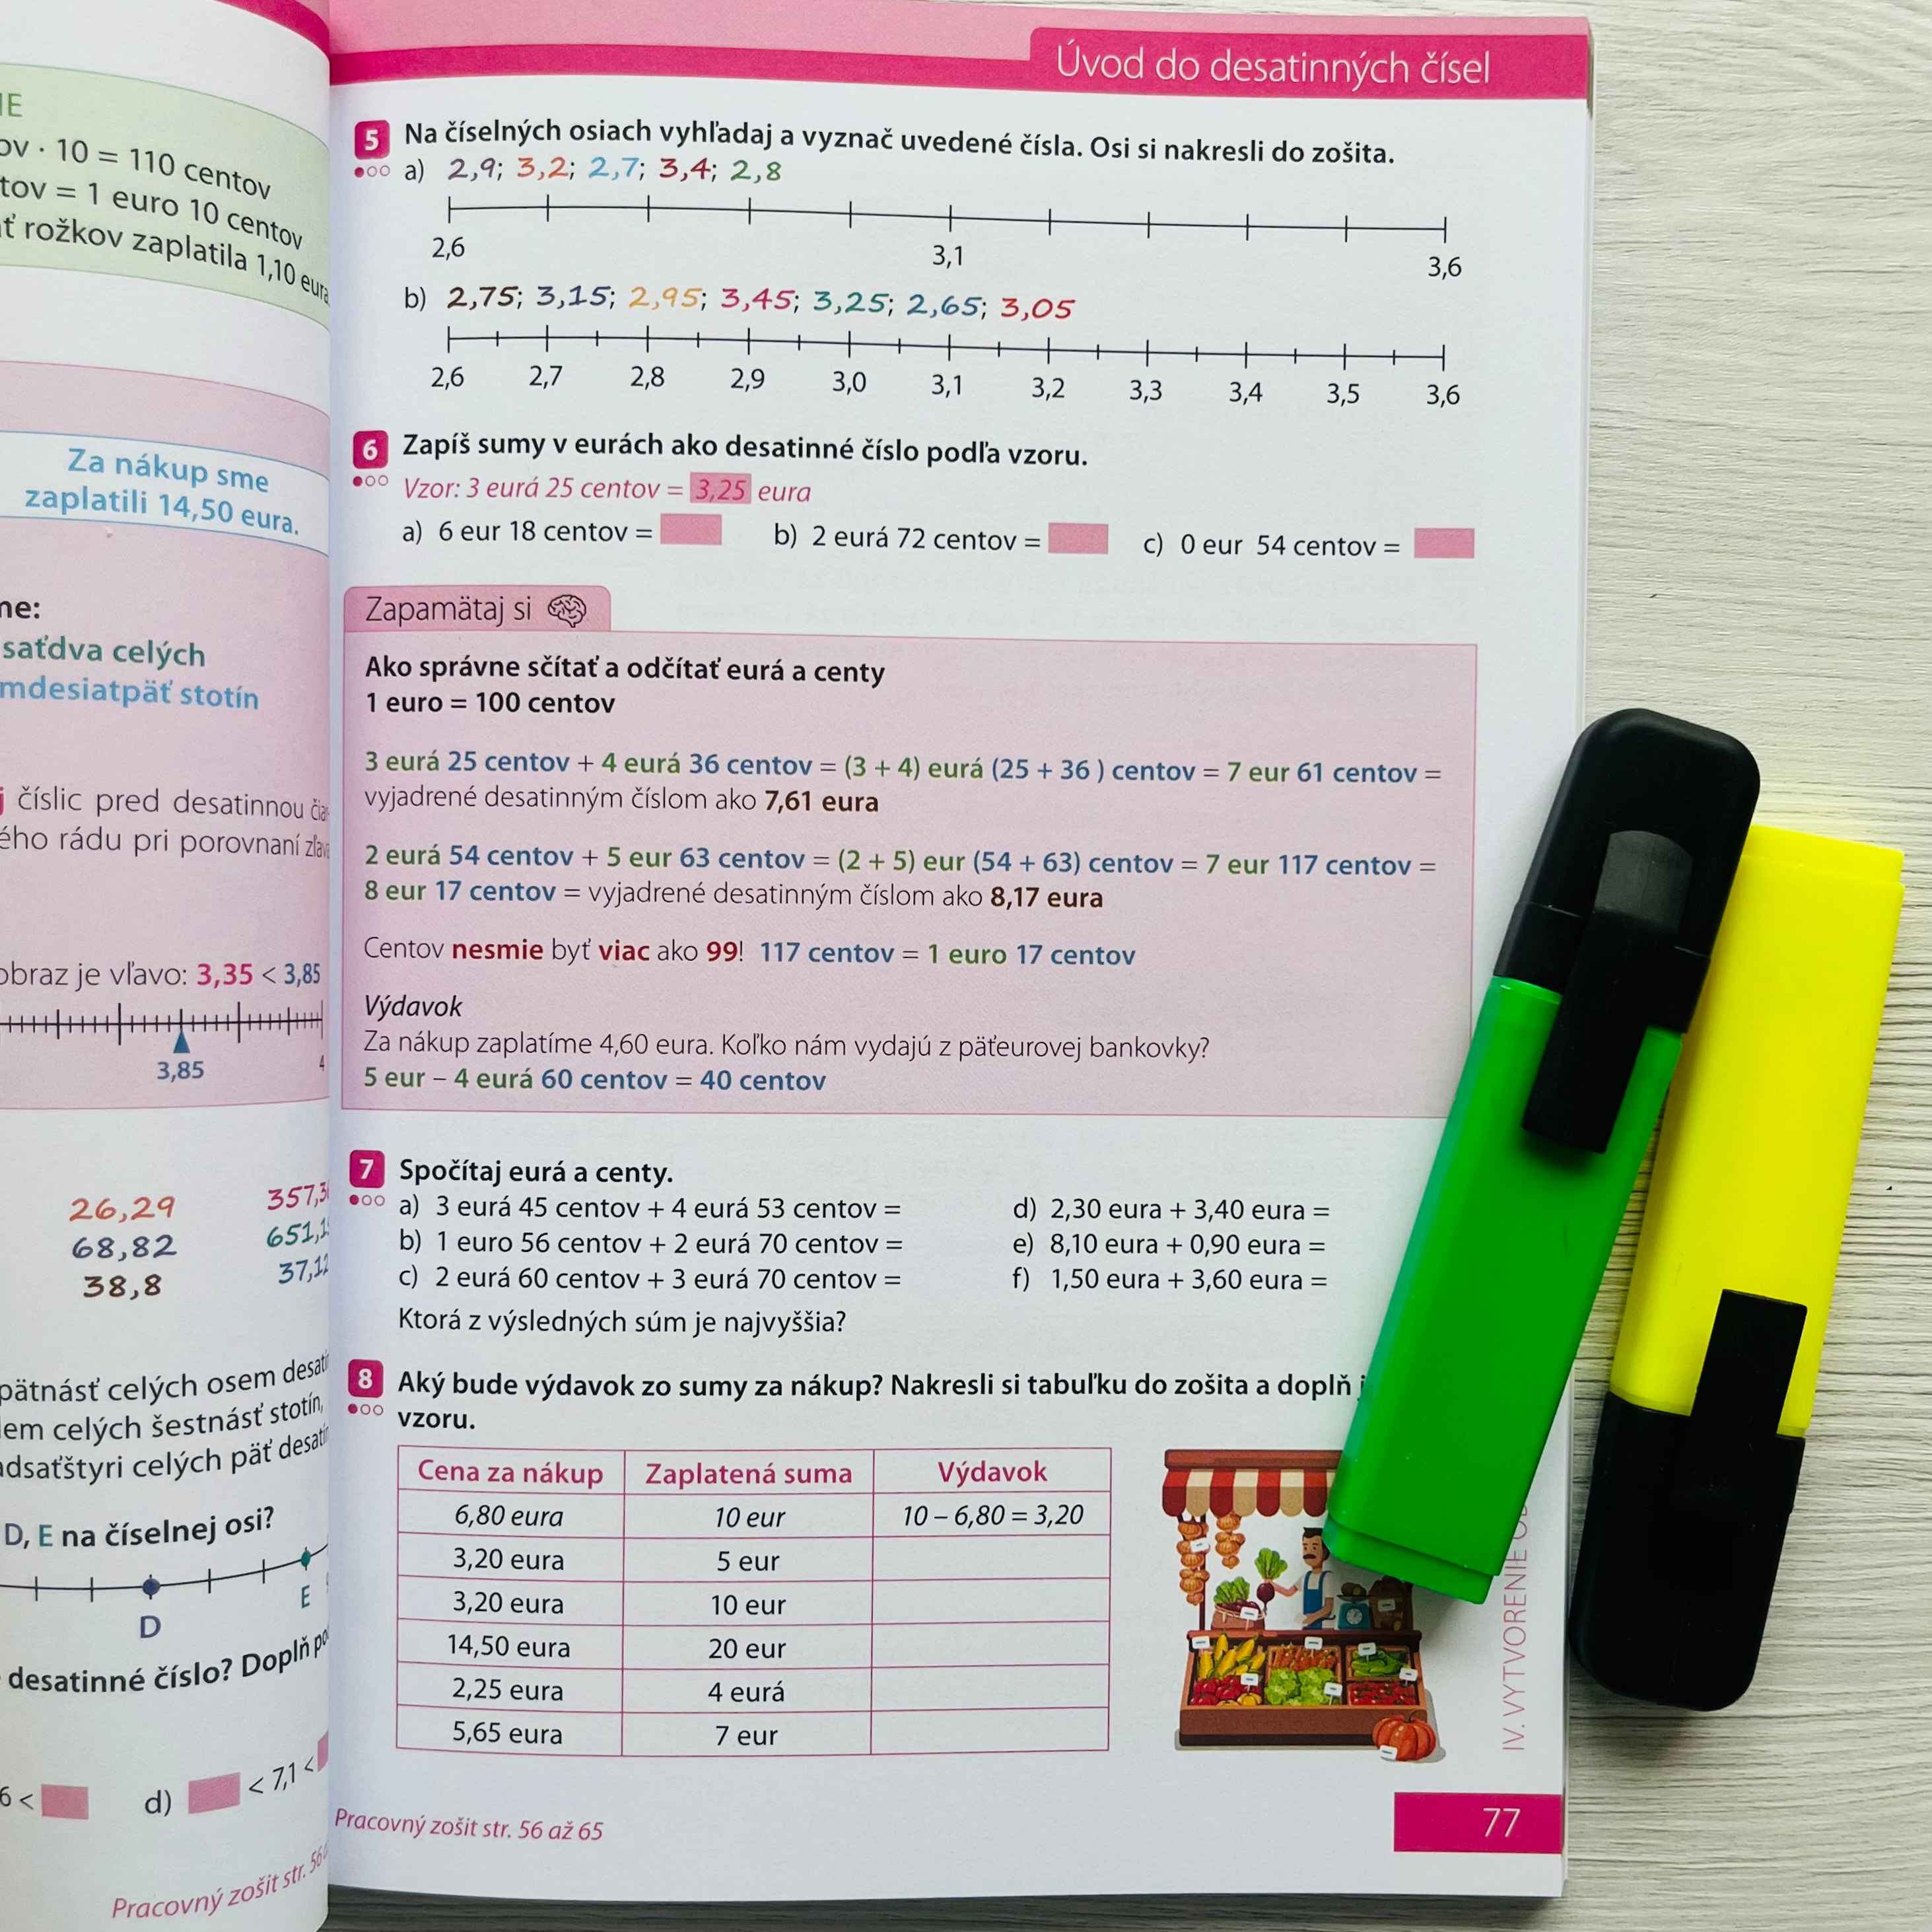 IE
ov · 10 = 110 centov
tov = 1 euro 10 centov
ť rožkov zaplatila 1,10 eura
Za nákup sme
zaplatili 14,50 eura.
me:
saťdva celých
mdesiatpäť stotín
j číslic pred desatinnou
ého rádu pri porovnaní
obraz je vľavo: 3,35 < 3,85
3,85
4
26,29
68,82
38,8
357,3
651,1
37,12
pätnásť celých osem
em celých šestnásť stotín,
dsaťštyri celých päť
D, E na číselnej osi?
D
E
desatinné číslo? Doplň
6 <
d) < 7,1 <
Pracovný zošit str. 56
Úvod do desatinných čísel
5 Na číselných osiach vyhľadaj a vyznač uvedené čísla. Osi si nakresli do zošita.
a) 2,9; 3,2; 2,7; 3,4; 2,8
2,6 3,1 3,6
b) 2,75; 3,15; 2,95; 3,45; 3,25; 2,65; 3,05
2,6 2,7 2,8 2,9 3,0 3,1 3,2 3,3 3,4 3,5 3,6
6 Zapíš sumy v eurách ako desatinné číslo podľa vzoru.
Vzor: 3 eurá 25 centov = 3,25 eura
a) 6 eur 18 centov = b) 2 eurá 72 centov = c) 0 eur 54 centov =
Zapamätaj si
Ako správne sčítať a odčítať eurá a centy
1 euro = 100 centov
3 eurá 25 centov + 4 eurá 36 centov = (3 + 4) eurá (25 + 36 ) centov = 7 eur 61 centov =
vyjadrené desatinným číslom ako 7,61 eura
2 eurá 54 centov + 5 eur 63 centov = (2 + 5) eur (54 + 63) centov = 7 eur 117 centov =
8 eur 17 centov = vyjadrené desatinným číslom ako 8,17 eura
Centov nesmie byť viac ako 99! 117 centov = 1 euro 17 centov
Výdavok
Za nákup zaplatíme 4,60 eura. Koľko nám vydajú z päťeurovej bankovky?
5 eur – 4 eurá 60 centov = 40 centov
7 Spočítaj eurá a centy.
a) 3 eurá 45 centov + 4 eurá 53 centov = d) 2,30 eura + 3,40 eura =
b) 1 euro 56 centov + 2 eurá 70 centov = e) 8,10 eura + 0,90 eura =
c) 2 eurá 60 centov + 3 eurá 70 centov = f) 1,50 eura + 3,60 eura =
Ktorá z výsledných súm je najvyššia?
8 Aký bude výdavok zo sumy za nákup? Nakresli si tabuľku do zošita a doplň
vzoru.
Cena za nákup Zaplatená suma Výdavok
6,80 eura 10 eur 10 – 6,80 = 3,20
3,20 eura 5 eur
3,20 eura 10 eur
14,50 eura 20 eur
2,25 eura 4 eurá
5,65 eura 7 eur
IV. VYTVORENIE
Pracovný zošit str. 56 až 65
77